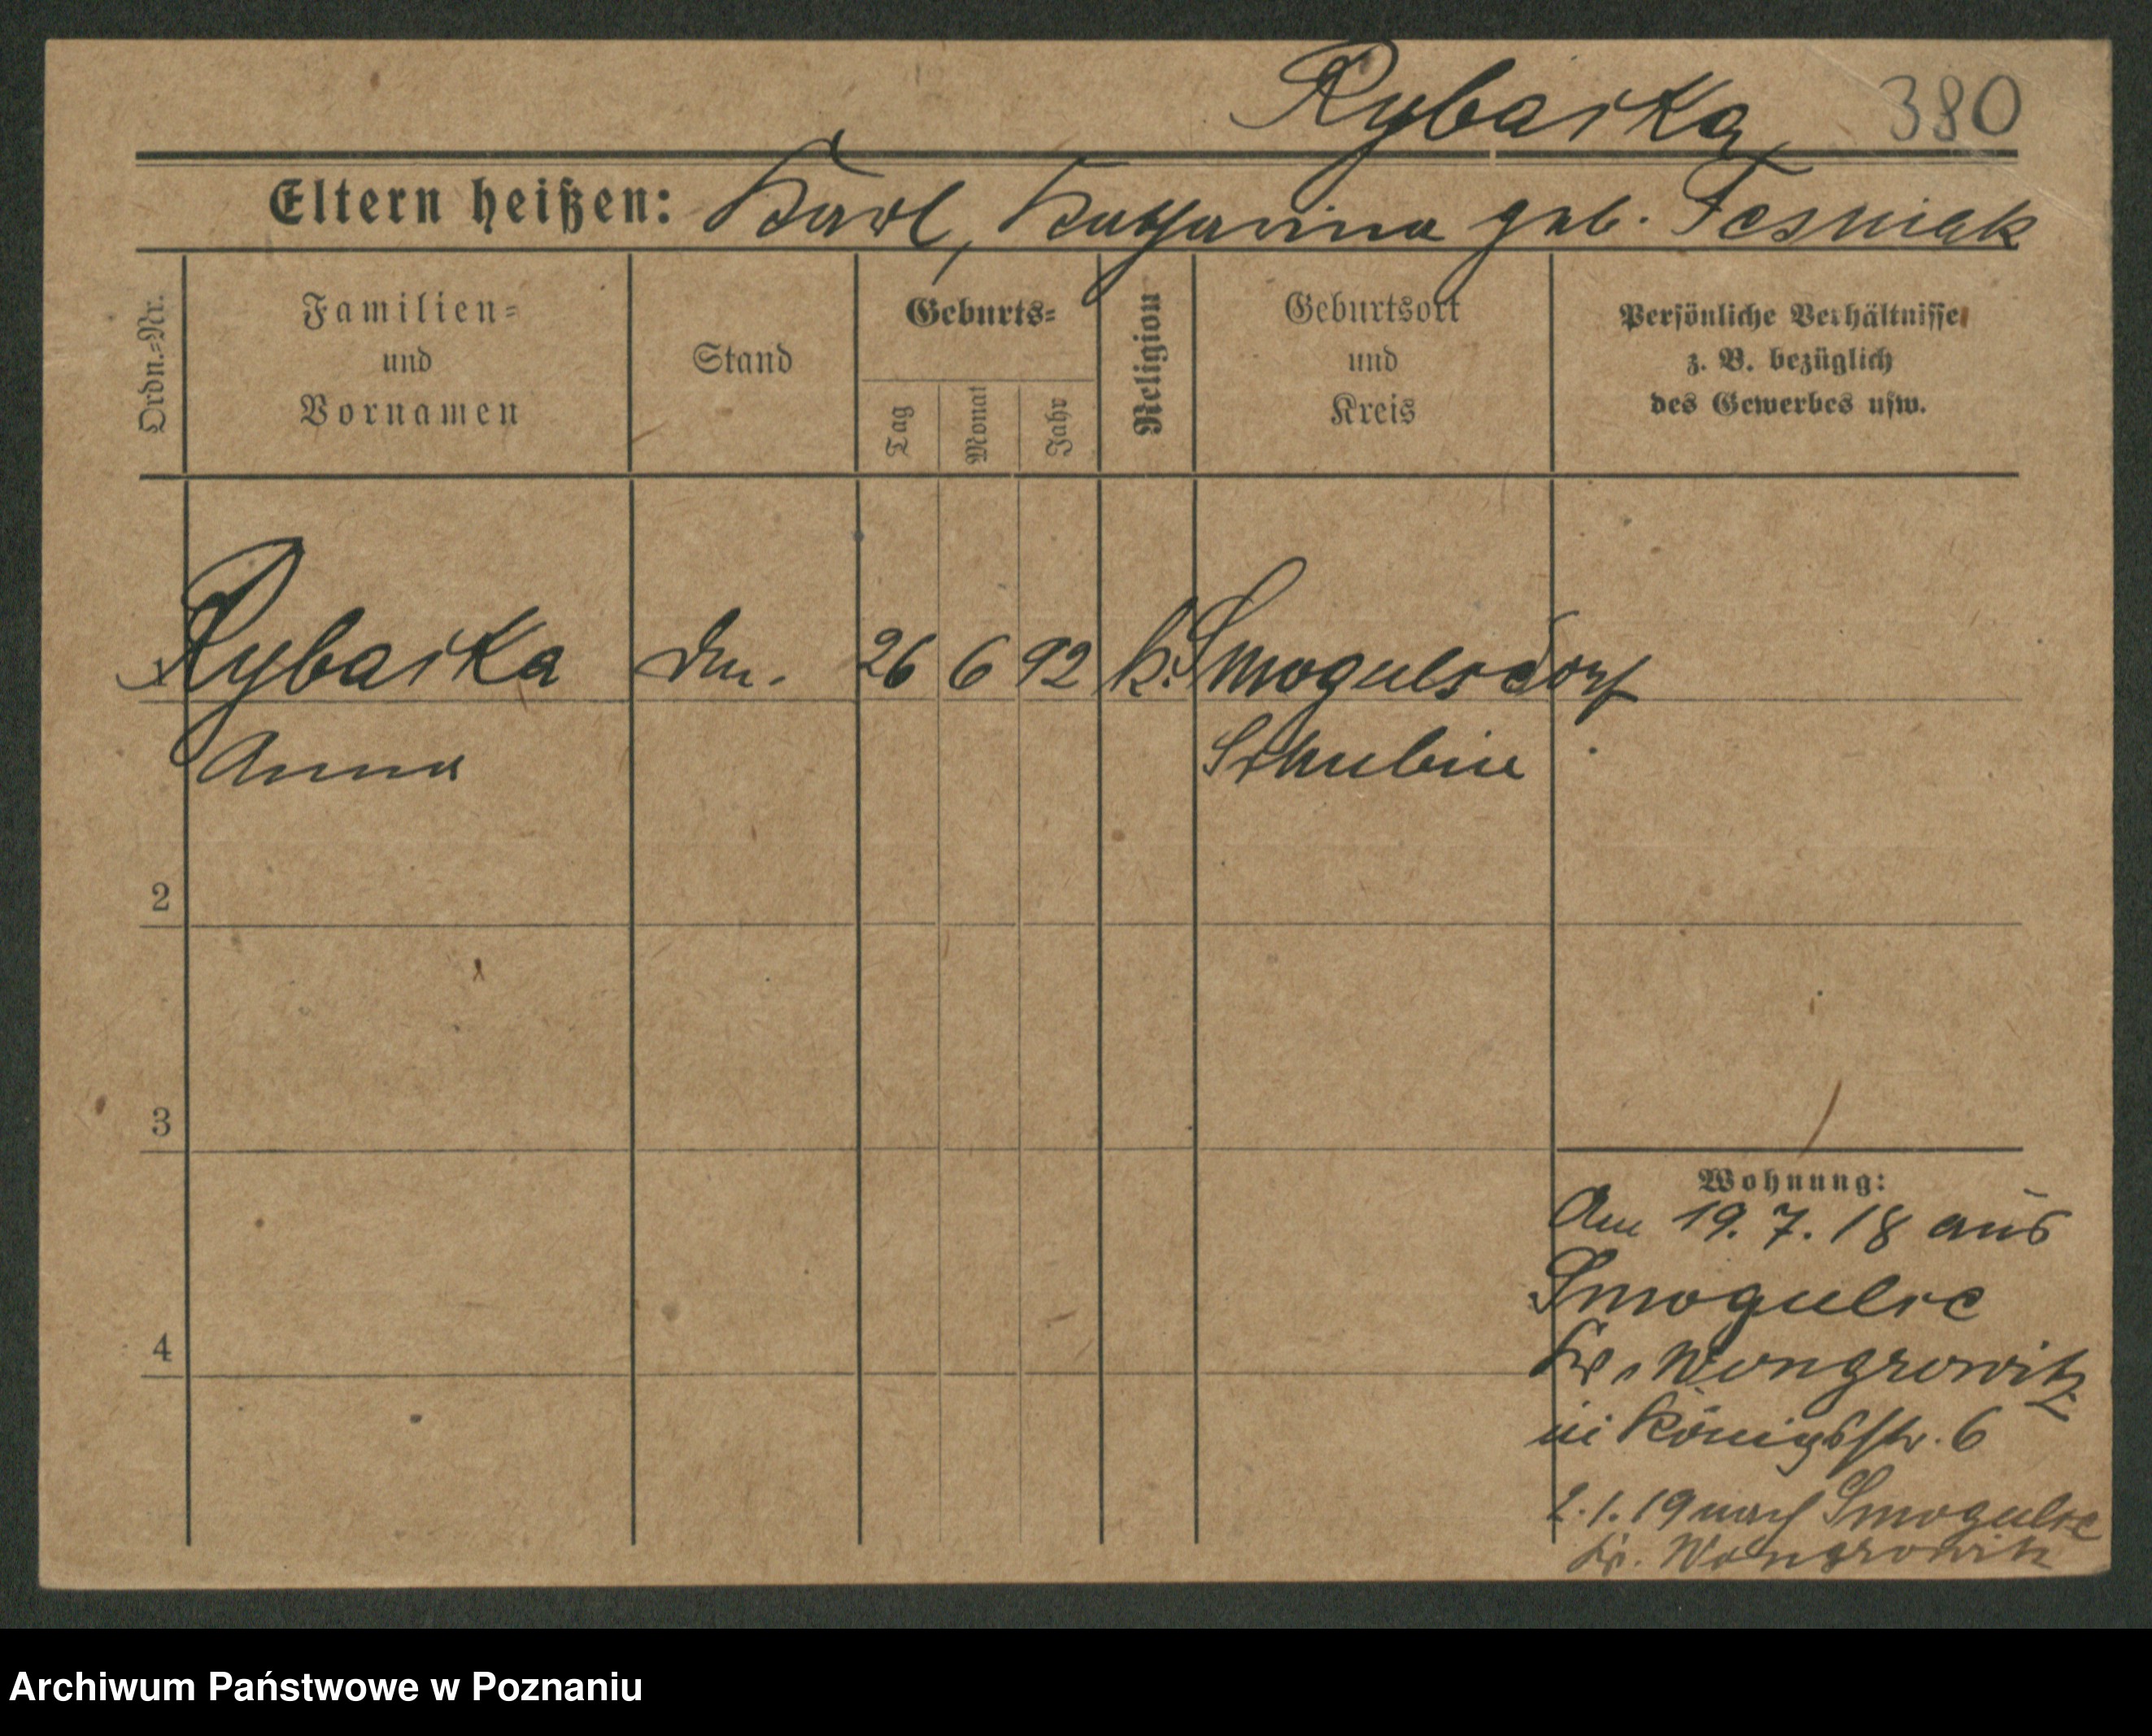 Rybarka 380
Eltern heißen: Karl, Katharina geb. Tesniak
Ordn.-Nr.
Familien=
und
Vornamen
Stand
Geburts=
Tag
Monat
Jahr
Religion
Geburtsort
und
Kreis
Persönliche Verhältnisse
z. B. bezüglich
des Gewerbes usw.
Rybarka 26 6 92 k. Smogulsdorf
Anna Schubin
2
3
4
Wohnung:
Am 19.7.18 aus
Smogulec
Kr. Wongrowitz
in Königsstr. 6
2.1.19 nach Smogulec
Kr. Wongrowitz
Archiwum Państwowe w Poznaniu